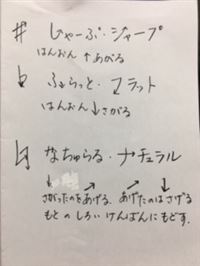 ♯ しゃーぷ・シャープ
はんおん ↑ あがる
♭ ふらっと・フラット
はんおん ↓ さがる
♮ なちゅらる・ナチュラル
↓ ↗ ↗ ↓
さがったのをあげる。あげたのはさげる
もとのしろいけんばんにもどす。